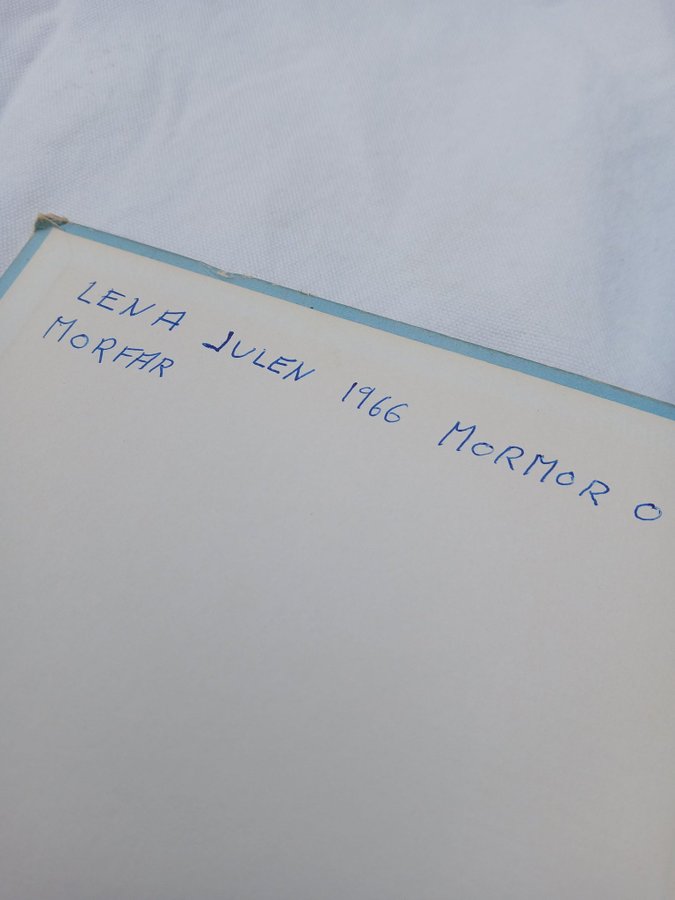 LENA JULEN 1966 MORMOR O
MORFAR